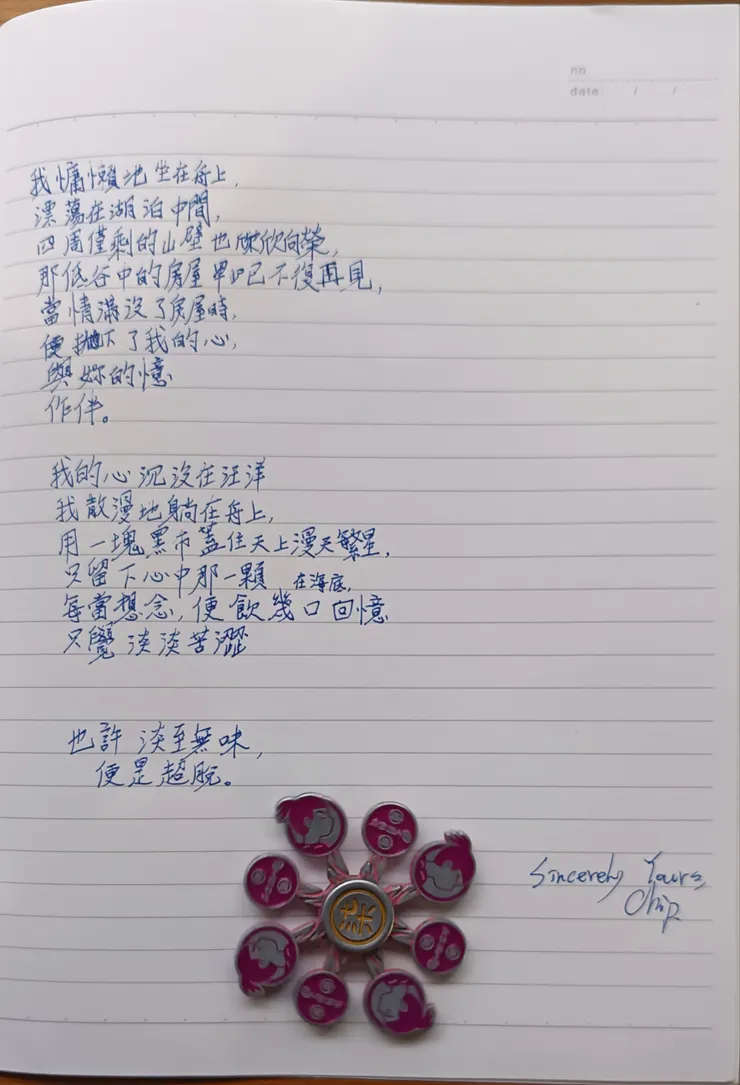 no
date / /
我慵懶地坐在舟上,
漂蕩在湖泊中間,
四周僅剩的山壁也欣欣向榮,
那低谷中的房屋早已不復再見,
當情滿沒了房屋時,
便拋下了我的心,
與妳的憶
作伴。
我的心沉沒在汪洋
我散漫地躺在舟上,
用一塊黑布蓋住天上漫天繁星,
只留下心中那一顆 在海底,
每當想念,便飲幾口回憶
只覺淡淡苦澀
也許淡至無味,
便是超脫。
Sincerely Yours,
Chip